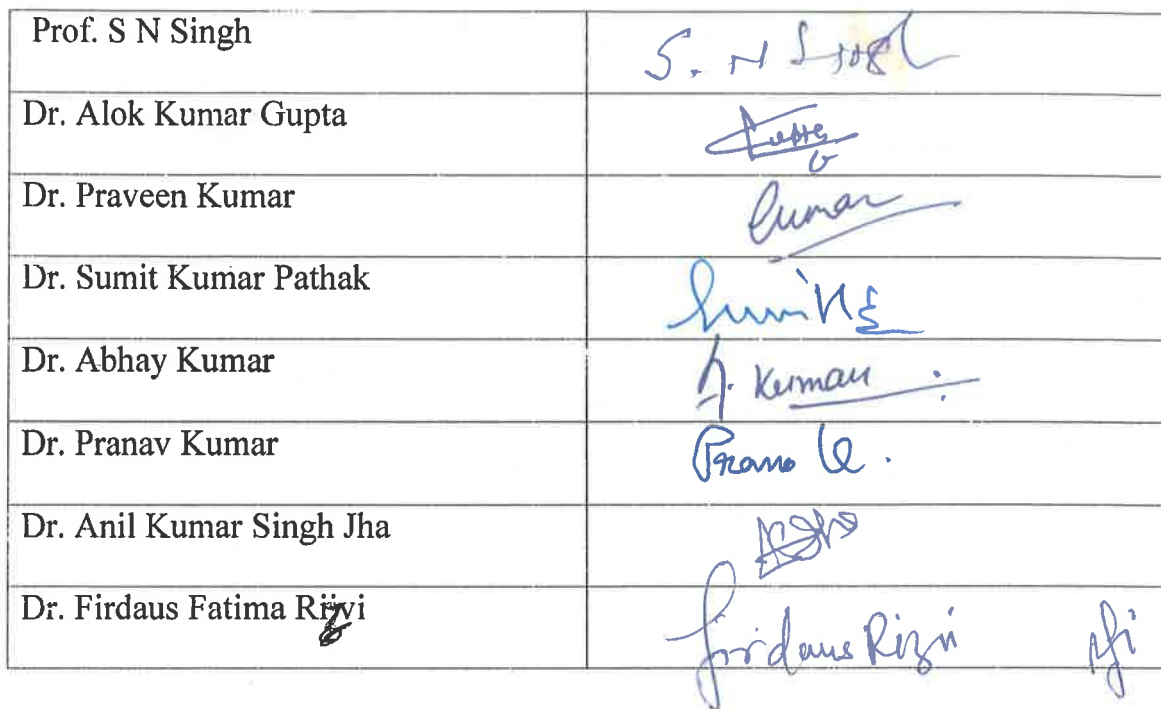 Prof. S N Singh
S. N Singh
Dr. Alok Kumar Gupta
Dr. Praveen Kumar
Kumar
Dr. Sumit Kumar Pathak
Dr. Abhay Kumar
A. Kumar
Dr. Pranav Kumar
Dr. Anil Kumar Singh Jha
Dr. Firdaus Fatima Rizvi
Firdaus Rizvi